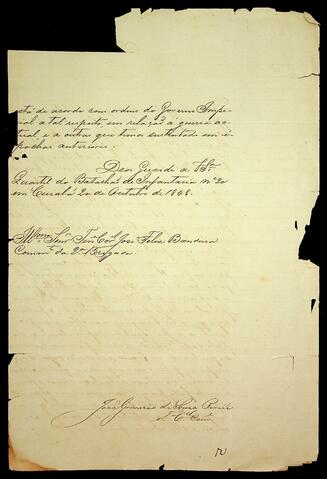 está de acordo com ordens do Governo Impe-
rial a tal respeito, em relação a guerra ac-
tual, e a outras que temos sustentado em é-
pochas anteriores.
Deos Guarde a V. Sª.
Quartel do Batalhão de Infantaria nº 20
em 20 de Outubro de 1868.
Illmo. Snr. Ten. Cel. José Felix Bandeira
Comm.te da 2ª Brigada
José de
T. C. Com.